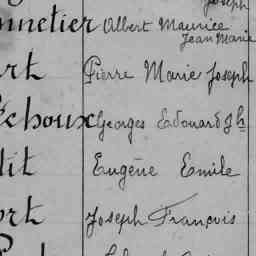 Joseph
nnetier Albert Maurice
Jean Marie
rt Pierre Marie Joseph
échoux Georges Edouard Jh
tit Eugène Emile
ort Joseph François